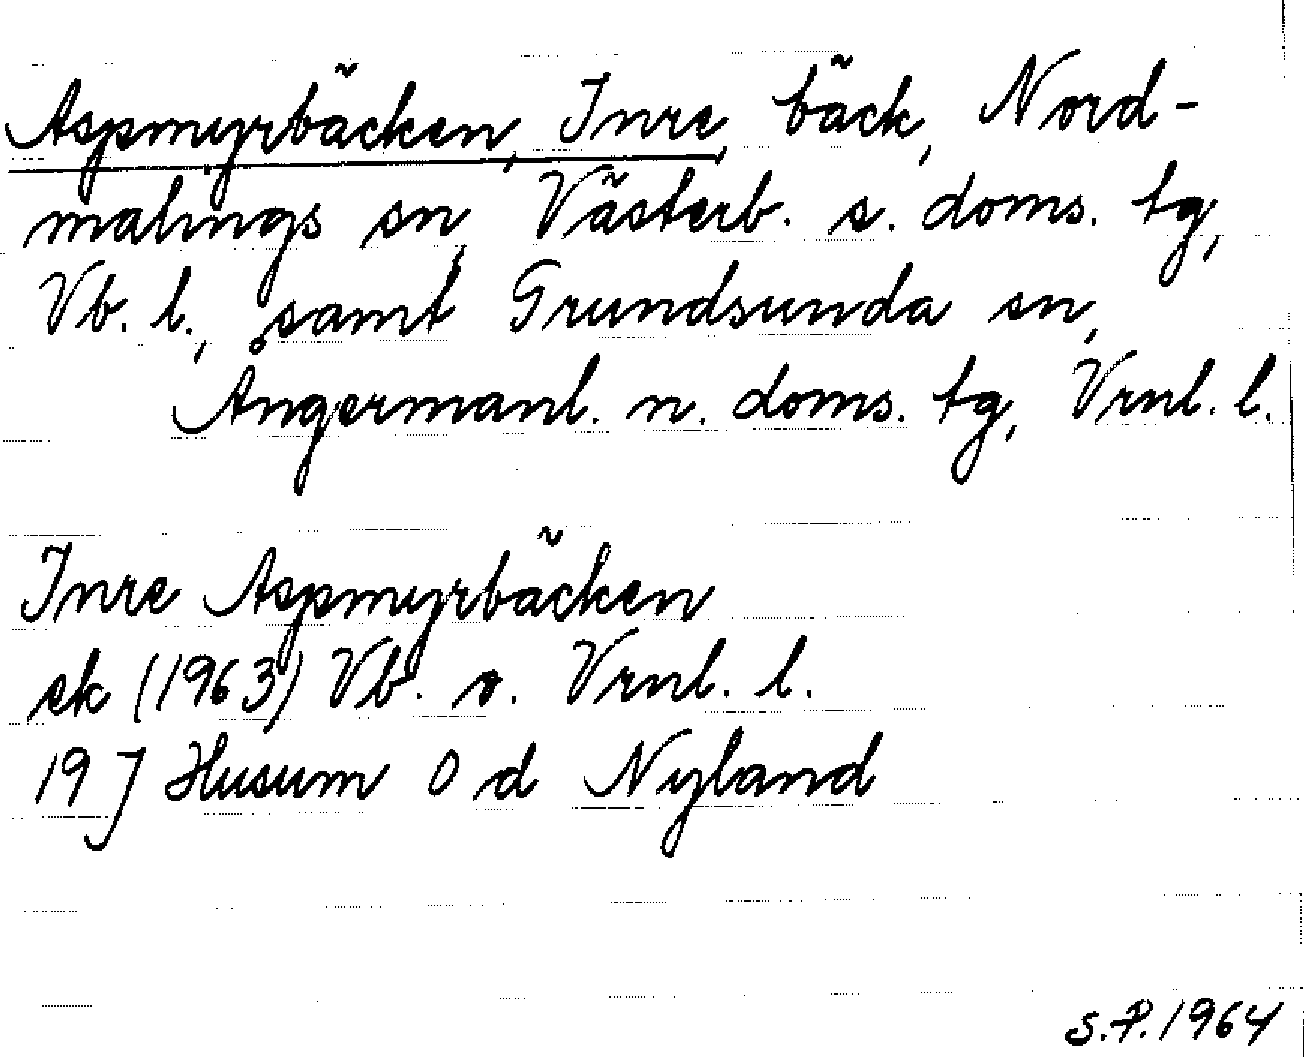 Aspmyrbäcken, Inre, bäck, Nord-
malings sn, Västerb. s. doms. tg,
Vb. l., samt Grundsunda sn,
Ångermanl. n. doms. tg, Vrnl. l.
Inre Aspmyrbäcken
ek (1963) Vb. o. Vrnl. l.
19 J Husum 0 d Nyland
S.P. 1964